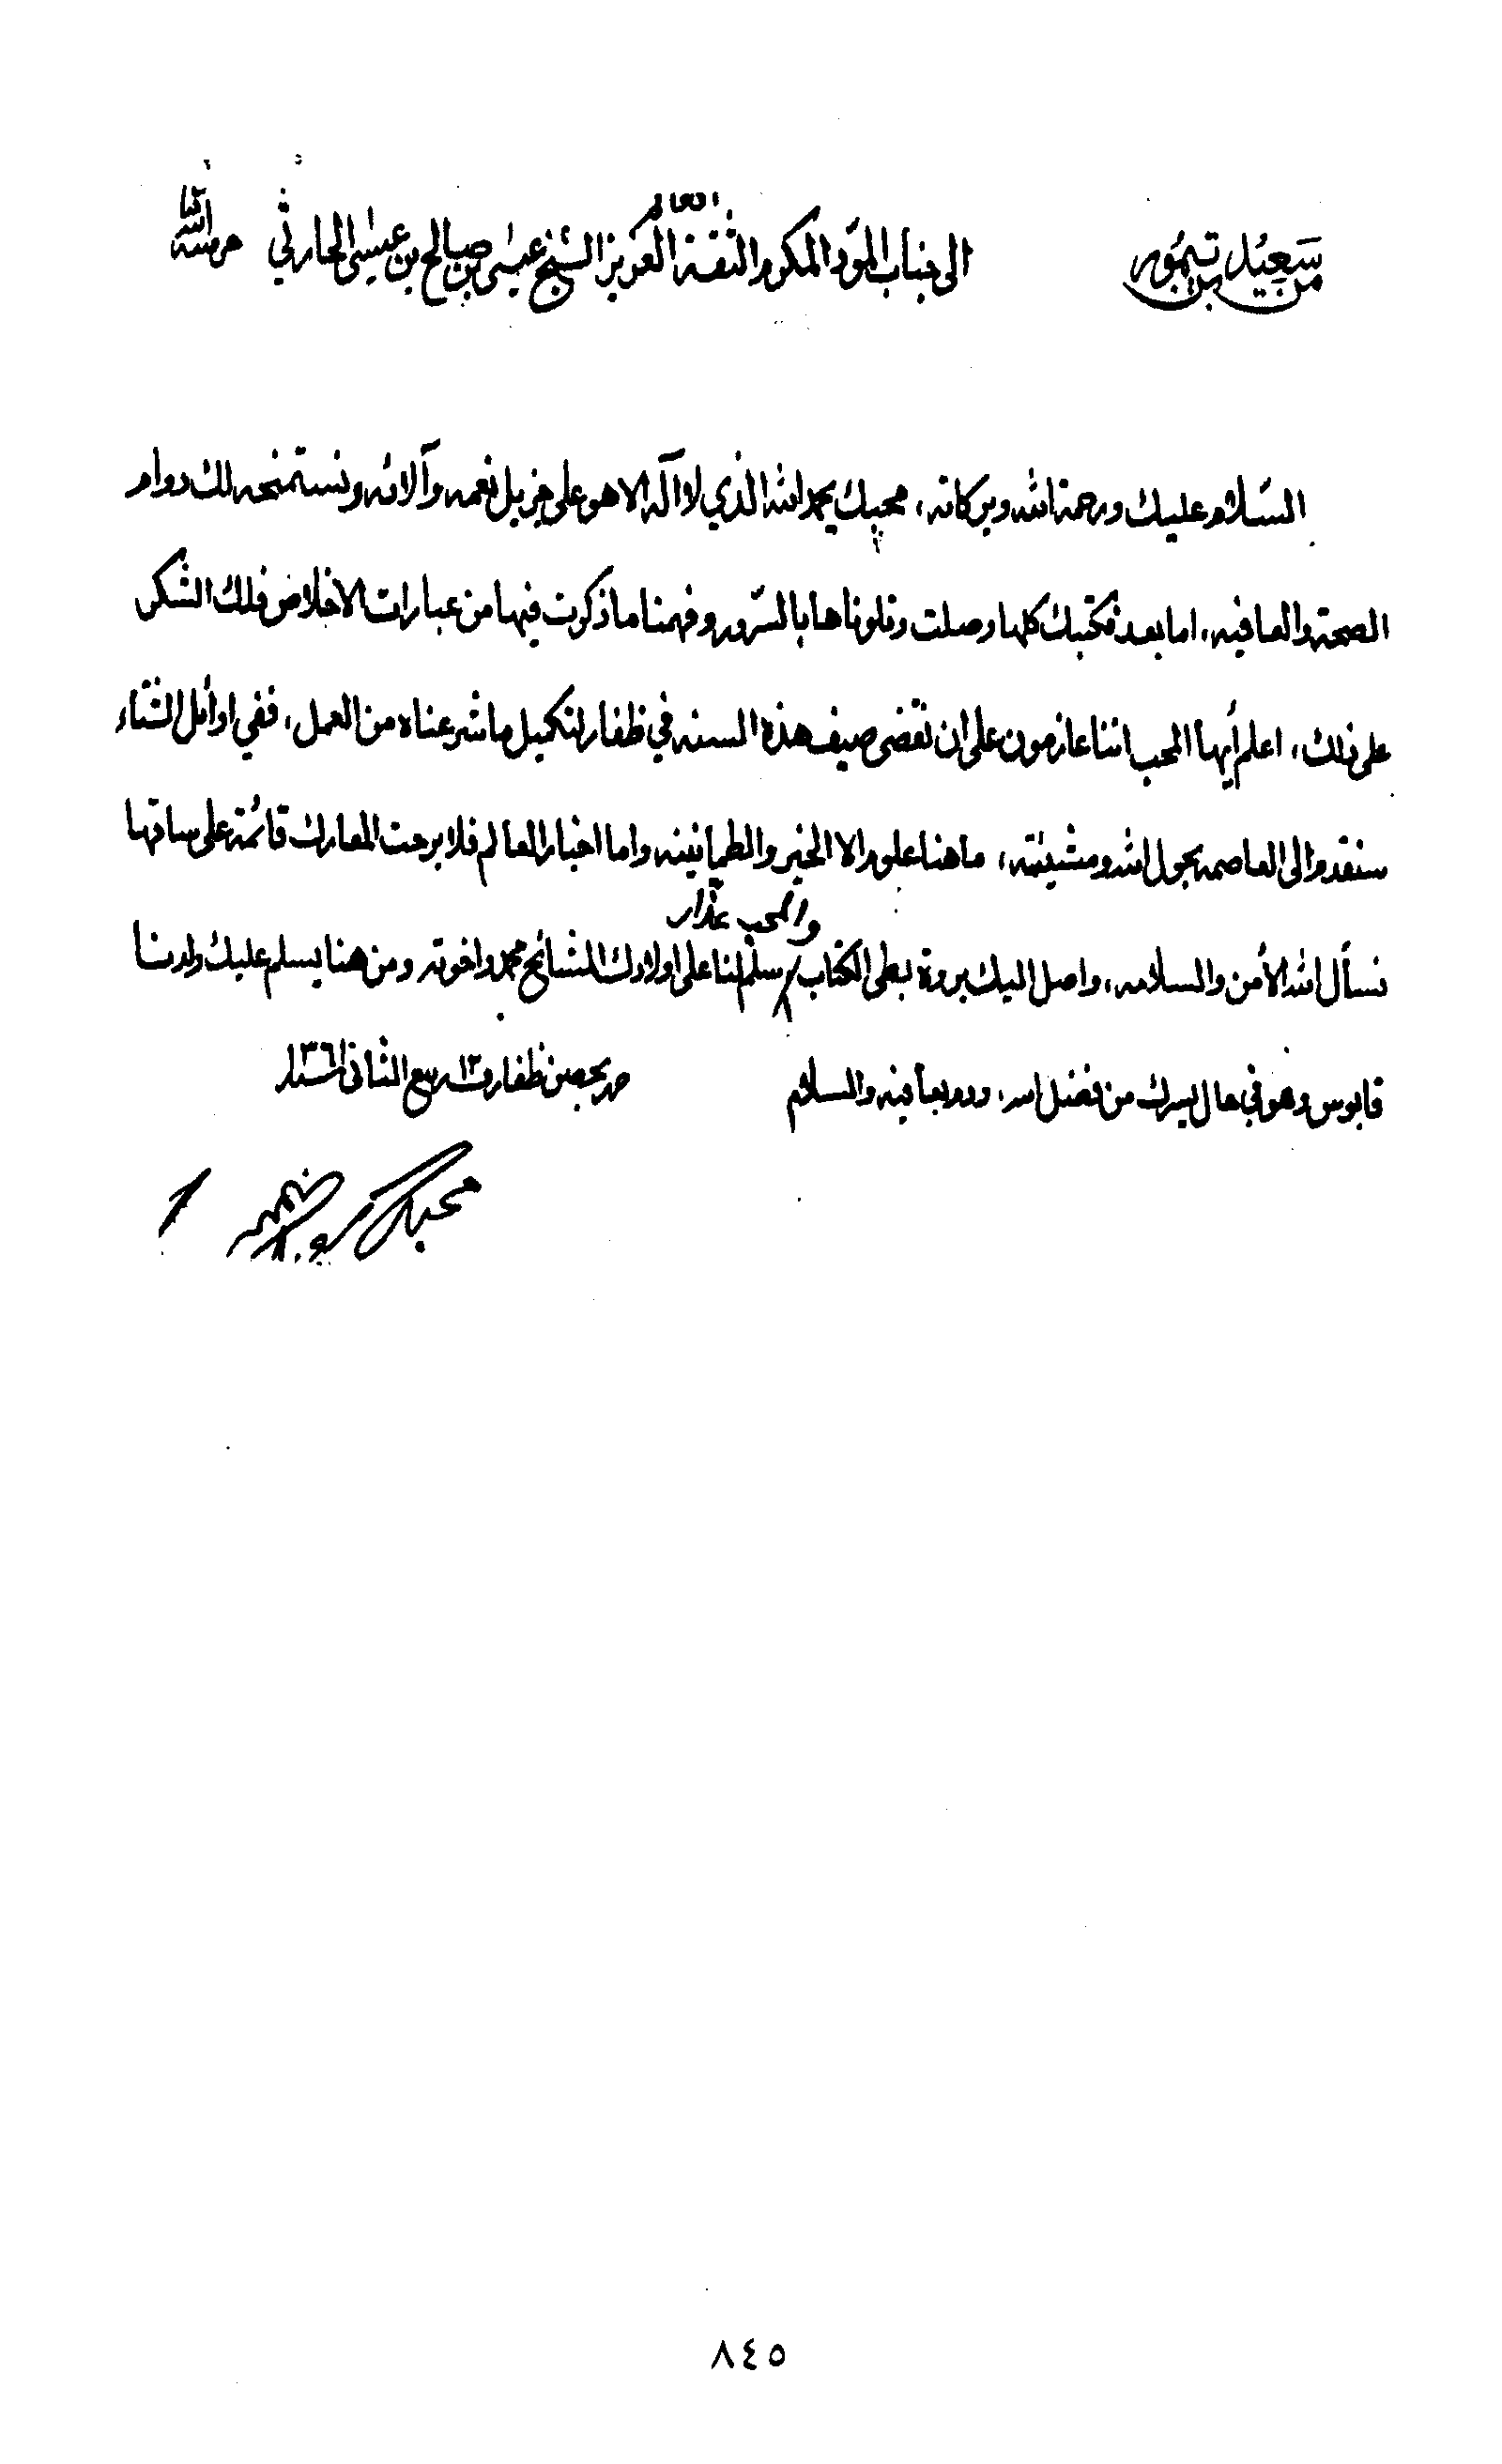 من سعيد بن تيمور
الى جناب المود المكرم الثقة العزيز الشيخ عيسى بن صالح بن عيسى الحارثي حرسه الله
السّلام عليك ورحمة الله وبركاته، محبك يحمد الله الذي لا آله الا هو على جزيل نعمه وآلائه ونستمنحه لك دوام
الصحة والعافيه، اما بعد فكتبك كلها وصلت وتلوناها بالسّرور وفهمنا ما ذكرت فيها من عبارات الاخلاص فلك الشكر
على ذلك، اعلم أيها المحب اننا عازمون على ان نقضى صيف هذه السنه في ظفار لتكميل ما شرعناه من العمل، ففي اوائل الشتاء
سنقدم الى العاصمه بحول الله ومشيئته، ما هنا علوم الا الخير والطمانينه واما اخبار العالم فلا برحت المعارك قائمة على ساقها
نسأل الله الأمن والسلامه، واصل اليك بروة بطى الكتاب سلّم لنا على اولادك المشائخ محمد واخوته ومن هنا يسلم عليك ولدنا
والمحب
قابوس وهو في حال يسرك من فضل الله، ودم بعافيه والسلام
حرر بحصن ظفار في ١٣ ربيع الثاني ١٣٦١
محبك
٨٤٥